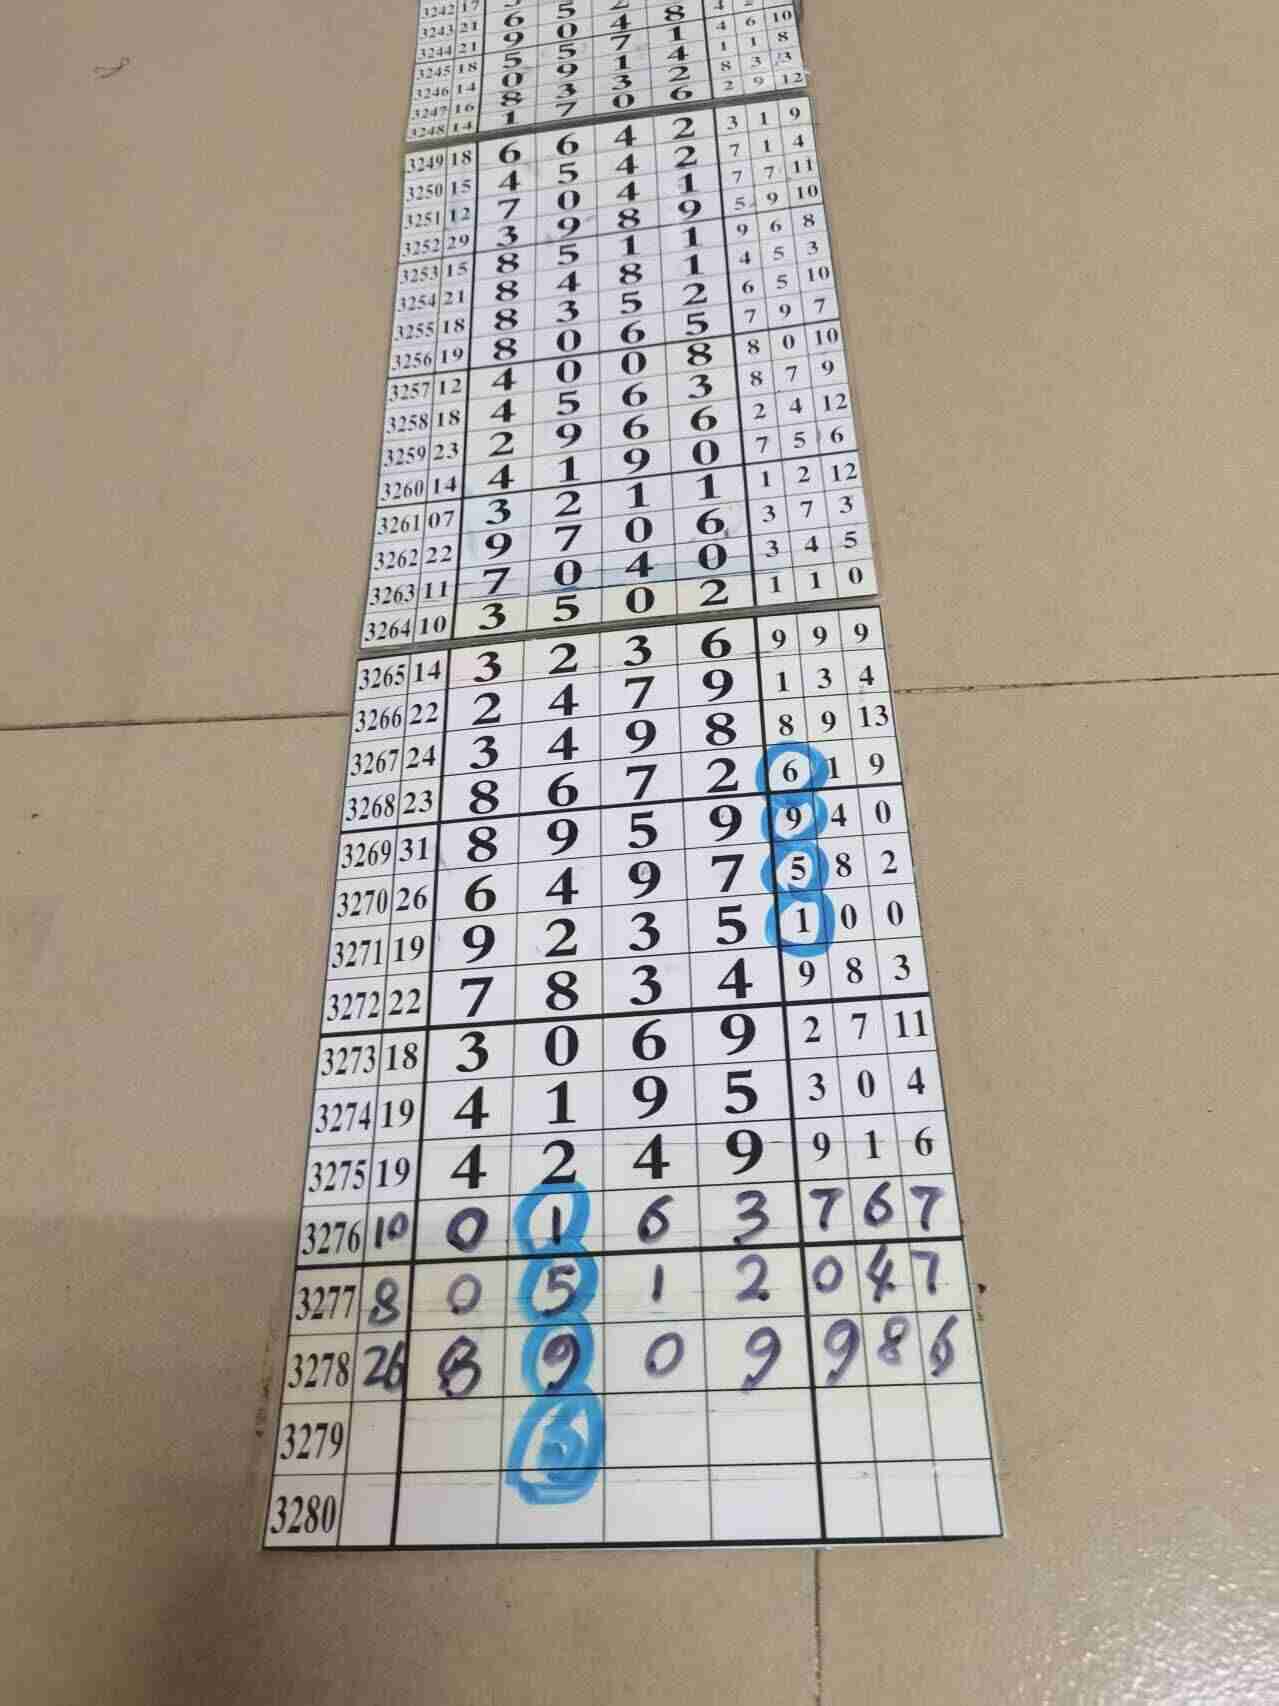 3242 17
3243 21 6 5 4 8 4 6 10
3244 21 9 0 7 1 1 1 8
3245 18 5 5 1 4 8 3 3
3246 14 0 9 3 2 2 9 12
3247 16 8 3 0 6
3248 14 1 7
3249 18 6 6 4 2 3 1 9
3250 15 4 5 4 2 7 1 4
3251 12 7 0 4 1 7 7 11
3252 29 3 9 8 9 5 9 10
3253 15 8 5 1 1 9 6 8
3254 21 8 4 8 1 4 5 3
3255 18 8 3 5 2 6 5 10
3256 19 8 0 6 5 7 9 7
3257 12 4 0 0 8 8 0 10
3258 18 4 5 6 3 8 7 9
3259 23 2 9 6 6 2 4 12
3260 14 4 1 9 0 7 5 6
3261 07 3 2 1 1 1 2 12
3262 22 9 7 0 6 3 7 3
3263 11 7 0 4 0 3 4 5
3264 10 3 5 0 2 1 1 0
3265 14 3 2 3 6 9 9 9
3266 22 2 4 7 9 1 3 4
3267 24 3 4 9 8 8 9 13
3268 23 8 6 7 2 6 1 9
3269 31 8 9 5 9 9 4 0
3270 26 6 4 9 7 5 8 2
3271 19 9 2 3 5 1 0 0
3272 22 7 8 3 4 9 8 3
3273 18 3 0 6 9 2 7 11
3274 19 4 1 9 5 3 0 4
3275 19 4 2 4 9 9 1 6
3276 10 0 1 6 3 7 6 7
3277 8 0 5 1 2 0 4 7
3278 26 8 9 0 9 9 8 6
3279 3
3280